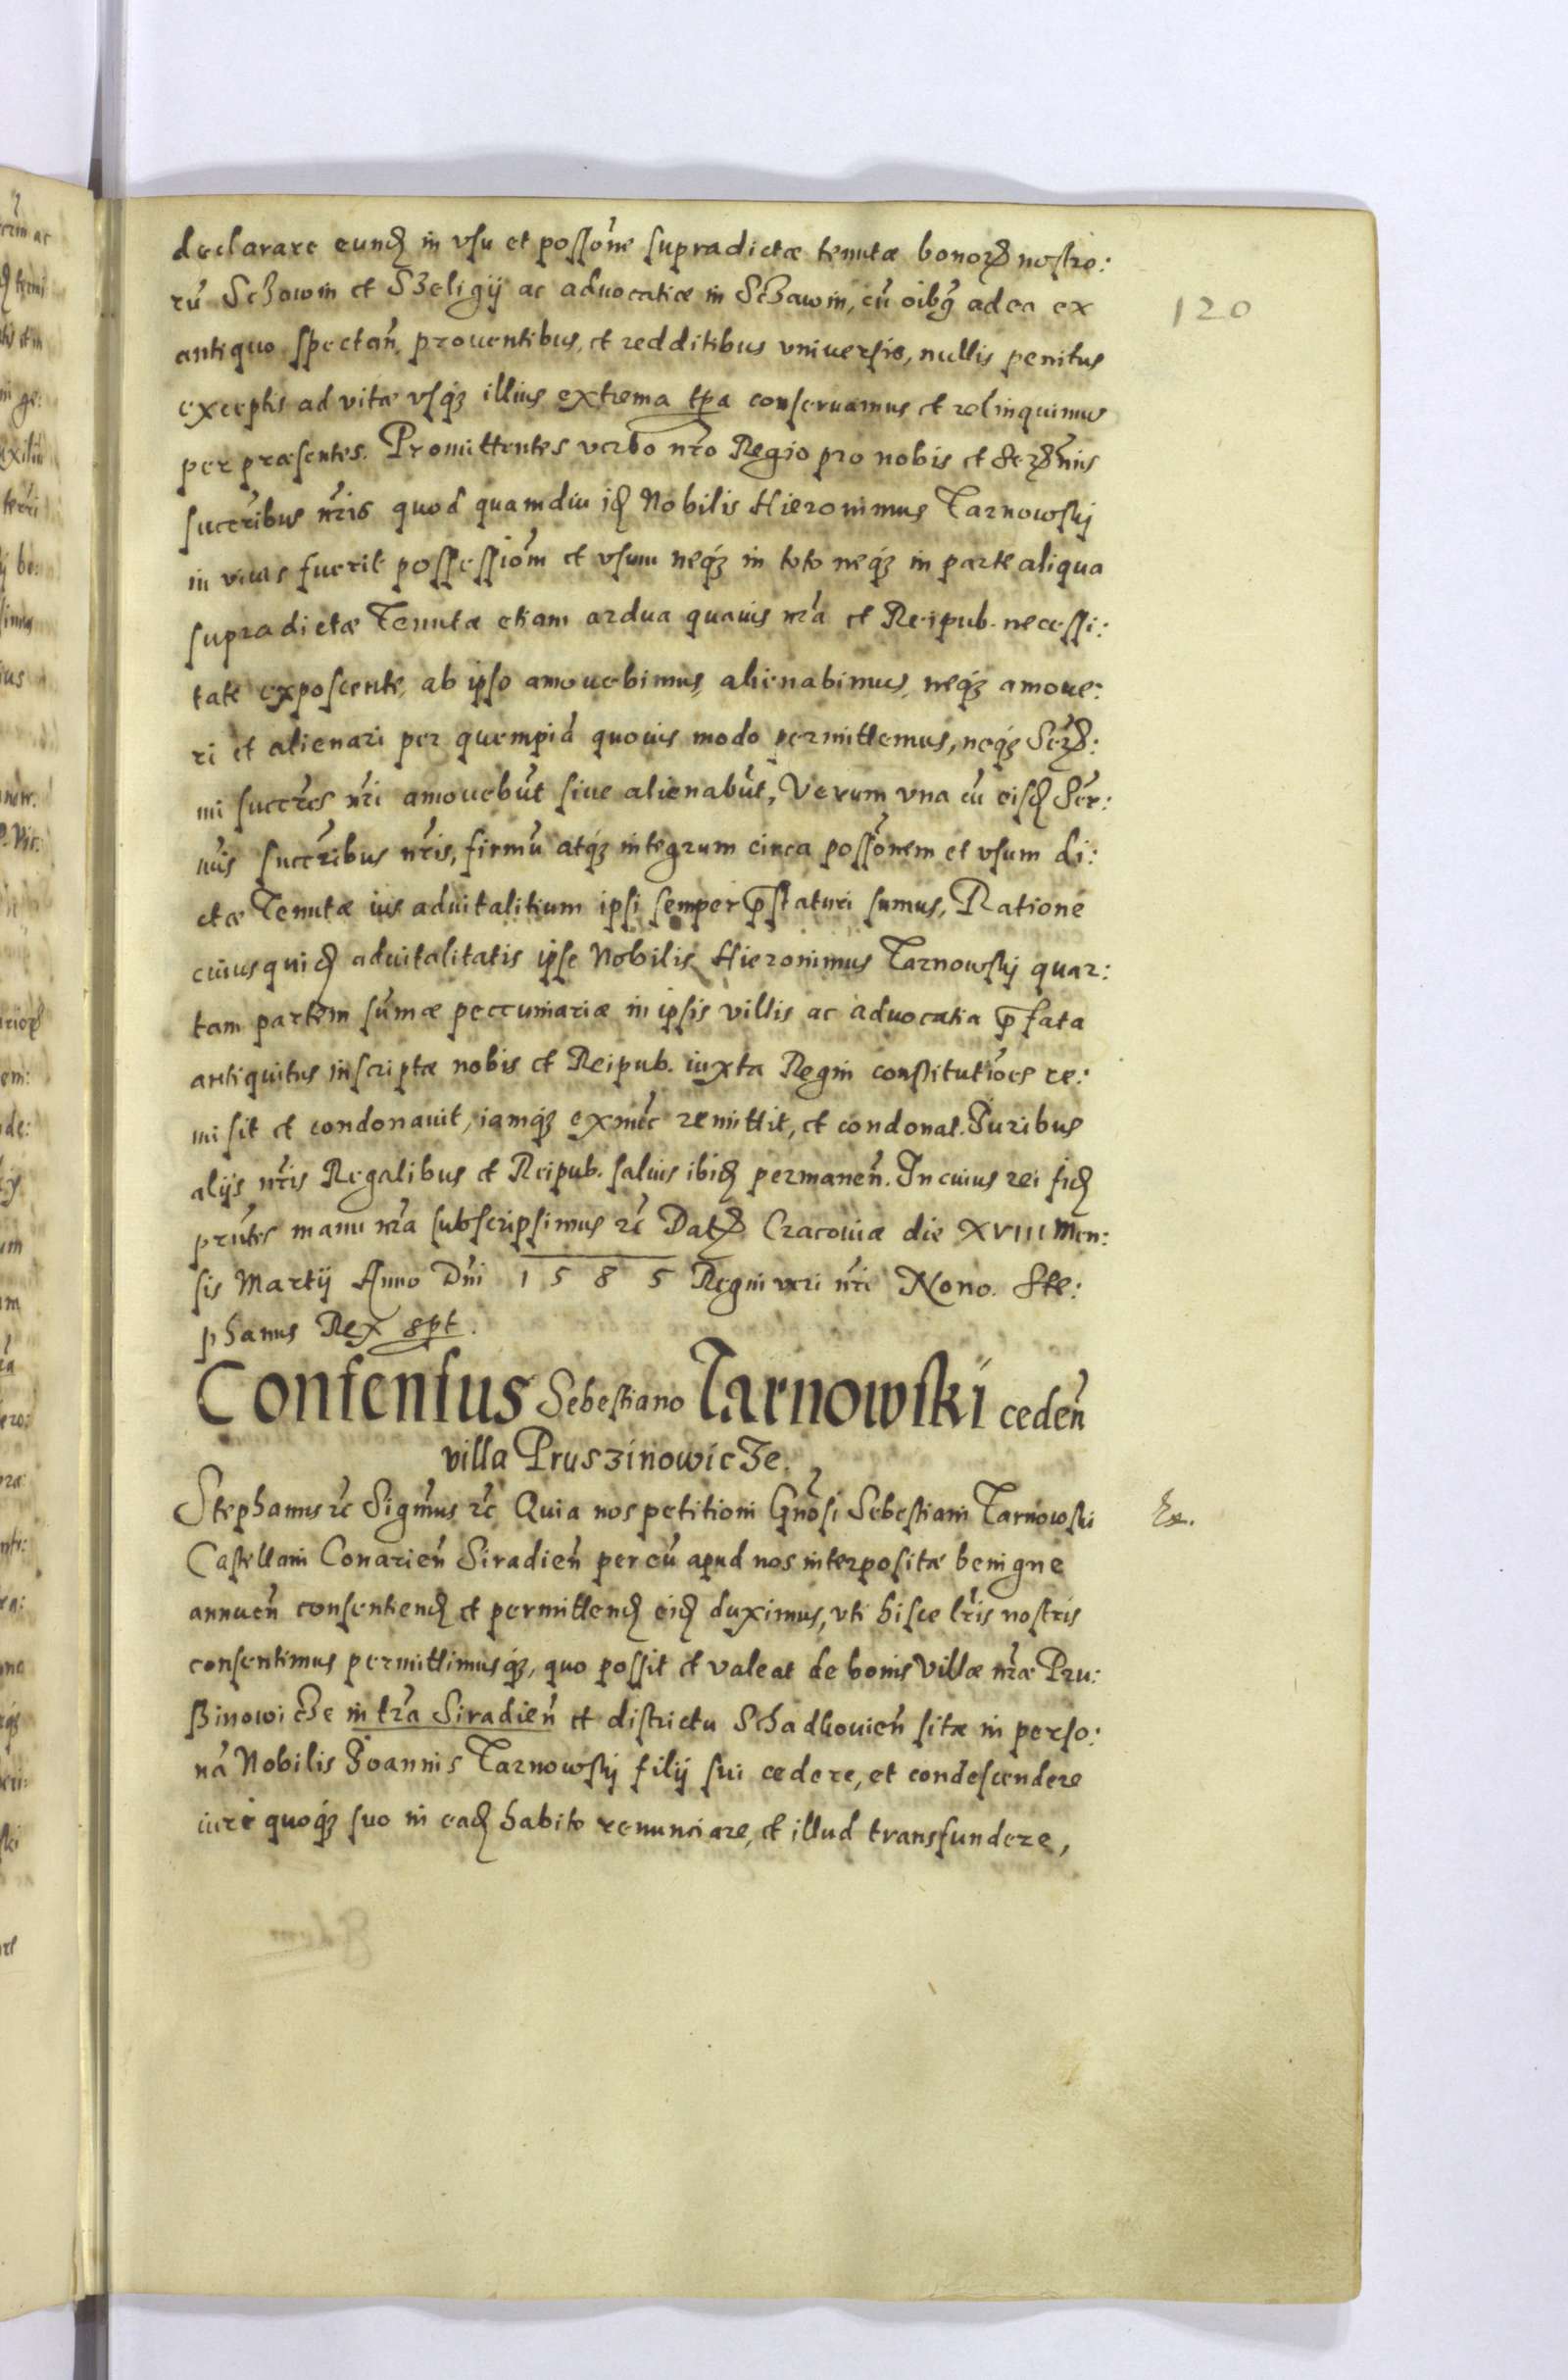 declarare eund in vsu et possone supradictæ tenutæ bonor nostro:
120
rū Schowin et Szeligij ac aduocatiæ in Schawin, cū oibq adea ex
antiquo spectan prouentibus, et redditibus vniuersis, nullis penitus
exceptis ad vitæ vsq illius extrema tpa conseruamus et relinquimus
per præsentes. Promittentes verbo nro Regio pro nobis et Sermis
succribus nris quod quamdiu id Nobilis Hieronimus Tarnowskj
in viuis fuerit possessiom et vsum neq in toto neq in parte aliqua
supradictæ Tenutæ etiam ardua quauis nra et Reipub. necessi:
tate exposcente, ab ipso amouebimus, alienabimus, neq amoue:
ri et alienari per quempiā quouis modo permittemus, neq Ser:
mi succres nri amouebūt siue alienabūt, Verum vna cū eisd Ser:
nis succribus nris, firmū atq integrum circa possonem et vsum di:
ctæ Tenutæ ius aduitalitium ipsi semper pstaturi sumus, Ratione
cuiusquid aduitalitatis ipse Nobilis Hieronimus Tarnowskj quar:
tam partem sumæ peccuniariæ in ipsis villis ac aduocatia pfata
antiquitus inscriptæ nobis et Reipub. iuxta Regni constitutioes re:
misit et condonauit, iamq exnūc remittit, et condonat. Juribus
alijs nris Regalibus et Reipub. saluis ibid permanen. In cuius rei fid
prntes manu nra subscripsimus rc Dat Cracouiæ die XVIII Men:
sis Martij Anno Dni 1585 Regni vri nri Nono. Ste:
phanus Rex spt.
Consensus Sebestiano Tarnowski ceden
villa Pruszinowicze.
Stephanus rc Sigmus rc Quia nos petitioni Gnosi Sebestiani Tarnowski
Castellani Conarien Siradien per eū apud nos interpositæ benigne
annuen consentiend et permittend eid duximus, vti hisce lris nostris
consentimus permittimusq, quo possit et valeat de bonis Villæ nræ Pru:
szinowicze in tra Siradien et districtu Schadkouien sitæ in perso:
nā Nobilis Joannis Tarnowskj filij sui cedere, et condescendere
iure quoq suo in ead habito renunciare, et illud transfundere,